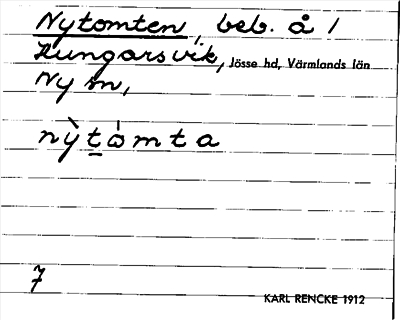 Nytomten, beb. å 1
Kungarsvik, Jösse hd, Värmlands län
Ny sn,
nỳt̲ò̲mta
7
KARL RENCKE 1912